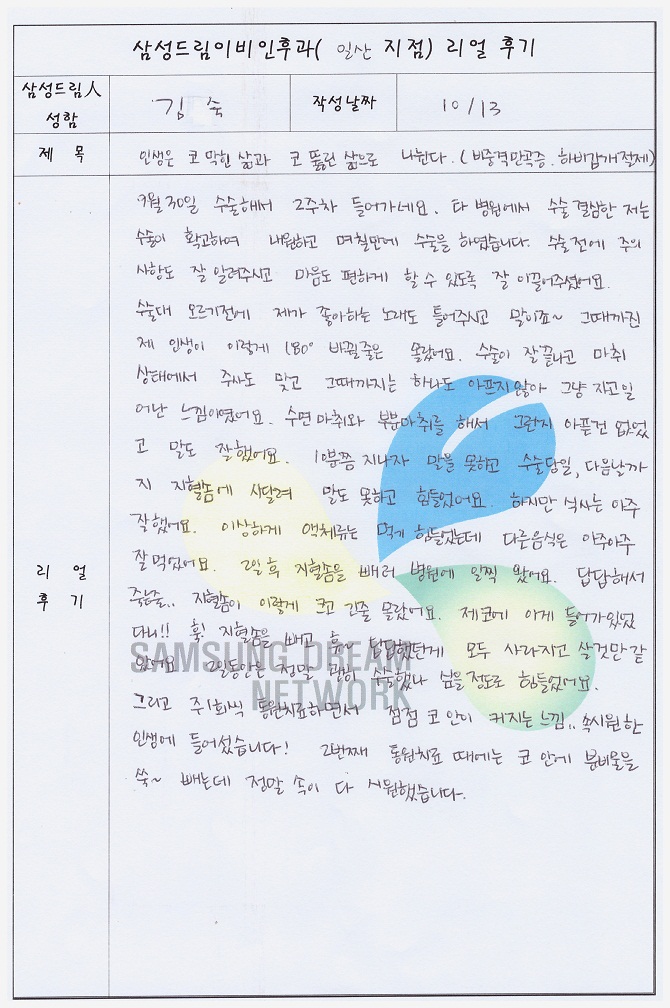 삼성드림이비인후과( 일산 지점) 리얼 후기
삼성드림人 성함
김 숙
작성날짜
10/13
제 목
인생은 코 막힌 삶과 코 뚫린 삶으로 나뉜다. (비중격만곡증. 하비갑개절제)
리 얼 후 기
9월 30일 수술해서 2주차 들어가네요. 타 병원에서 수술 결심한 저는
수술이 확고하여 내원하고 며칠만에 수술을 하였습니다. 수술전에 주의
사항도 잘 알려주시고 마음도 편하게 할 수 있도록 잘 이끌어주셨어요.
수술대 오르기전에 제가 좋아하는 노래도 틀어주시고 말이죠~ 그때까진
제 인생이 이렇게 180° 바뀔줄은 몰랐어요. 수술이 잘끝나고 마취
상태에서 주사도 맞고 그때까지는 하나도 아프지않아 그냥 자고일
어난 느낌이였어요. 수면마취와 부분마취를 해서 그런지 아픈건 없었
고 말도 잘했어요. 10분쯤 지나자 말을 못하고 수술당일, 다음날까
지 지혈솜에 시달려 말도 못하고 힘들었어요. 하지만 식사는 아주
잘했어요. 이상하게 액체류는 먹기 힘들었는데 다른음식은 아주아주
잘먹었어요. 2일후 지혈솜을 빼러 병원에 일찍 왔어요. 답답해서
죽는줄.. 지혈솜이 이렇게 크고 긴줄 몰랐어요. 제코에 이게 들어가있었
다니!! 훅! 지혈솜을 빼고 흥~ 답답했던게 모두 사라지고 살것만같
았어요 2일동안은 정말 괜히 수술했나 싶을정도로 힘들었어요.
그리고 주1회씩 통원치료하면서 점점 코안이 커지는 느낌.. 속시원한
인생에 들어섰습니다! 2번째 통원치료 때에는 코 안에 분비물을
쑥~ 빼는데 정말 속이 다 시원했습니다.
SAMSUNG DREAM
NETWORK